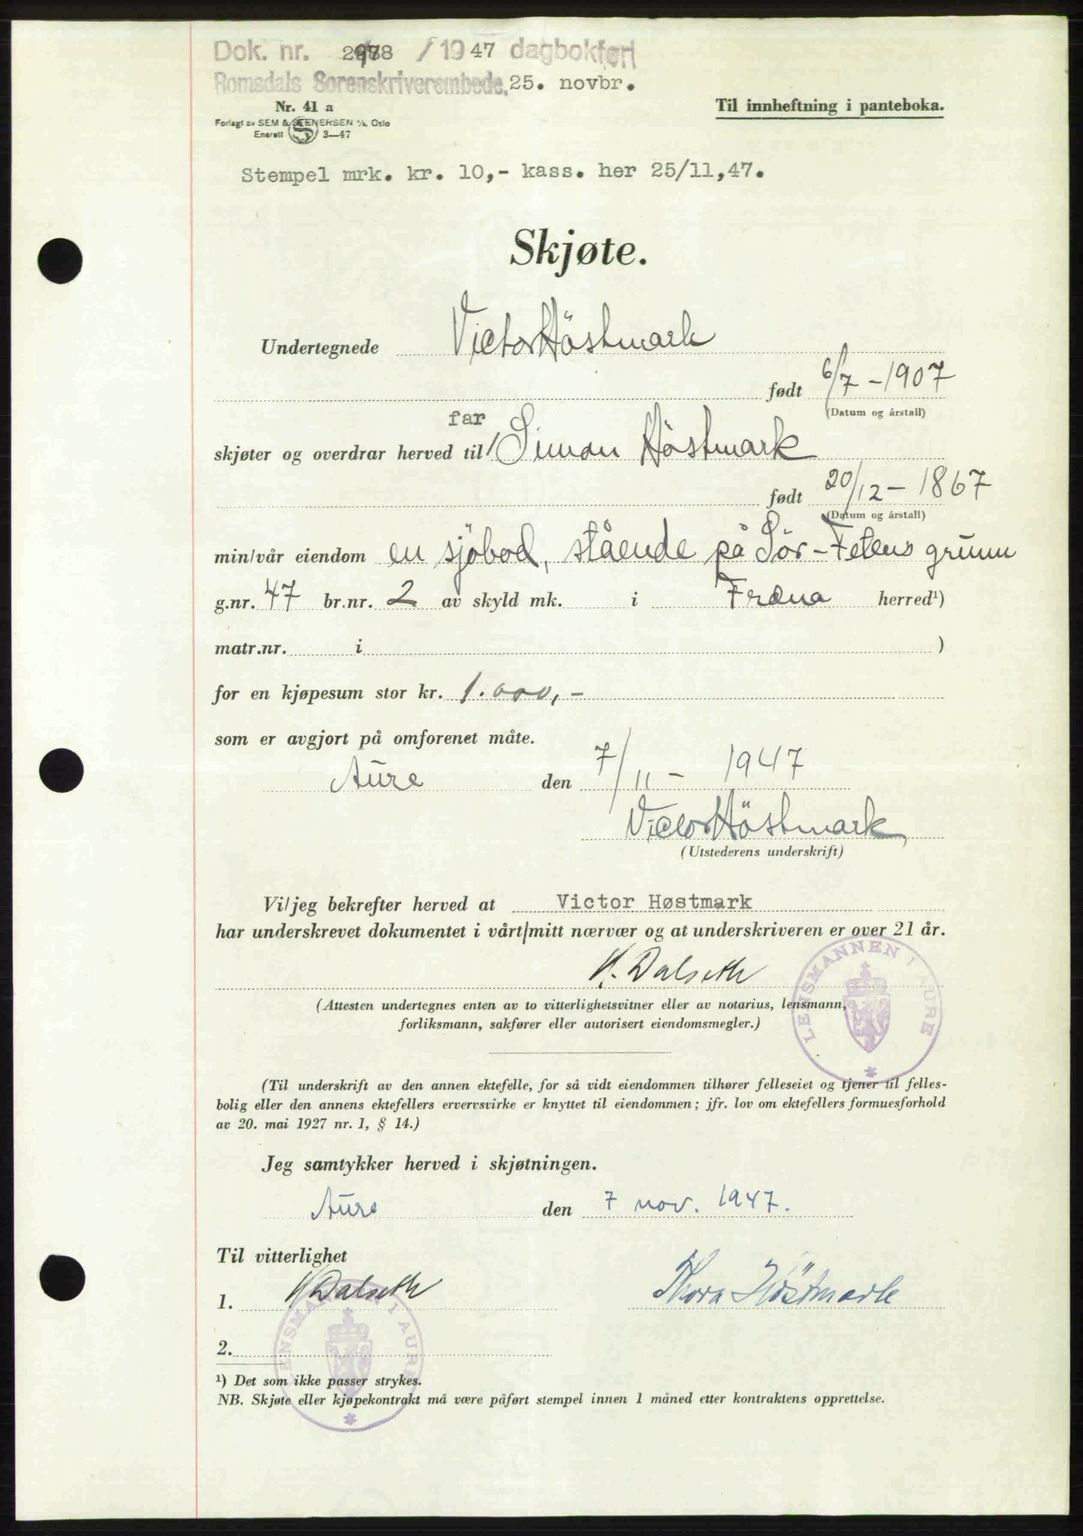 Dok. nr. 2978 / 1947 dagbokført
Romsdals Sorenskriverembede, 25. novbr.
Nr. 41 a
Til innheftning i panteboka.
Forlagt av SEM & STENERSEN A/S, Oslo
Enerett 3—47
Stempel mrk. kr. 10,- kass. her 25/11,47.
Skjøte.
Undertegnede Victor Höstmark
født 6/7 - 1907
(Datum og årstall)
far
skjøter og overdrar herved til / Simon Höstmark
født 20/12 - 1867
(Datum og årstall)
min/vår eiendom en sjöbod, stående på Sör-Fetens grunn
g.nr. 47 br.nr. 2 av skyld mk. i Fræna herred¹)
matr.nr. i )
for en kjøpesum stor kr. 1.000,-
som er avgjort på omforenet måte.
Aure den 7/11 - 1947
Victor Höstmark
(Utstederens underskrift)
Vi/jeg bekrefter herved at Victor Høstmark
har underskrevet dokumentet i vårt/mitt nærvær og at underskriveren er over 21 år.
K. Dalseth
LENSMANNEN I AURE
(Attesten undertegnes enten av to vitterlighetsvitner eller av notarius, lensmann,
forliksmann, sakfører eller autorisert eiendomsmegler.)
(Til underskrift av den annen ektefelle, for så vidt eiendommen tilhører felleseiet og tjener til felles-
bolig eller den annens ektefellers ervervsvirke er knyttet til eiendommen; jfr. lov om ektefellers formuesforhold
av 20. mai 1927 nr. 1, § 14.)
Jeg samtykker herved i skjøtningen.
Aure den 7 nov. 1947.
Til vitterlighet
1. K Dalseth Thora Höstmark
2.
LENSMANNEN I AURE
¹) Det som ikke passer strykes.
NB. Skjøte eller kjøpekontrakt må være påført stempel innen 1 måned etter kontraktens opprettelse.